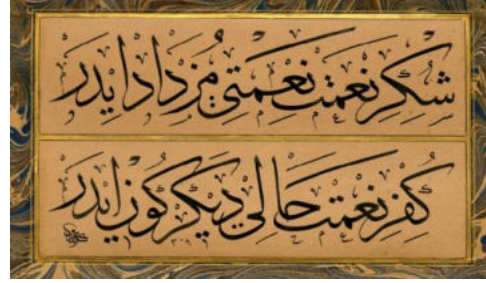 شكر نعمت نعمتي مزداد ايدر
كفر نعمت حالي ديگرگون ايدر